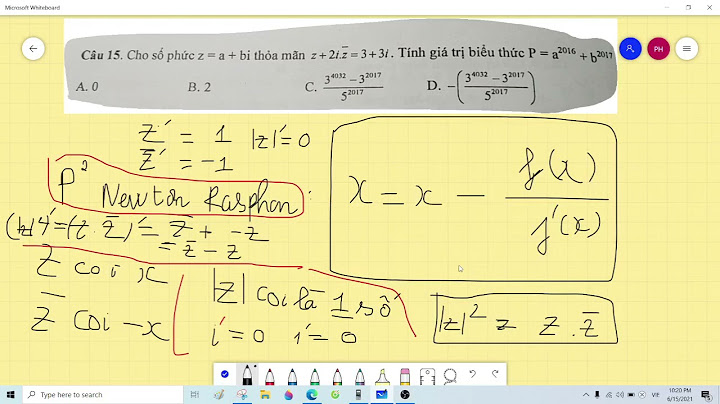 Microsoft Whiteboard
PH
Câu 15. Cho số phức z = a + bi thỏa mãn z + 2i.z̅ = 3 + 3i. Tính giá trị biểu thức P = a²⁰¹⁶ + b²⁰¹⁷
A. 0 B. 2 C. (3⁴⁰³² − 3²⁰¹⁷)/5²⁰¹⁷ D. −((3⁴⁰³² − 3²⁰¹⁷)/5²⁰¹⁷)
z' = 1 |z|' = 0
z̅' = -1
P²
Newton Rasphon:
x = x - f(x)/f'(x)
= (z.z̅)' = z̅ + -z
= z̅ - z
z coi x
z̅ coi -x
|z| coi là 1 số
i' = 0 1' = 0
|z|² = z.z̅
Type here to search
VIE
10:20 PM
6/15/2021